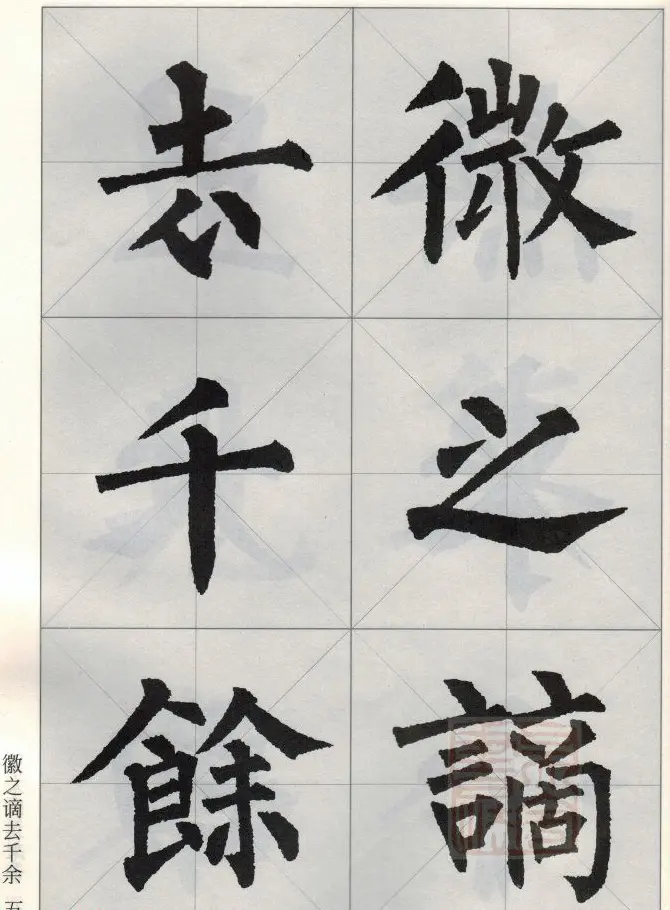 徽之謫
去千餘
徽之谪去千余 五